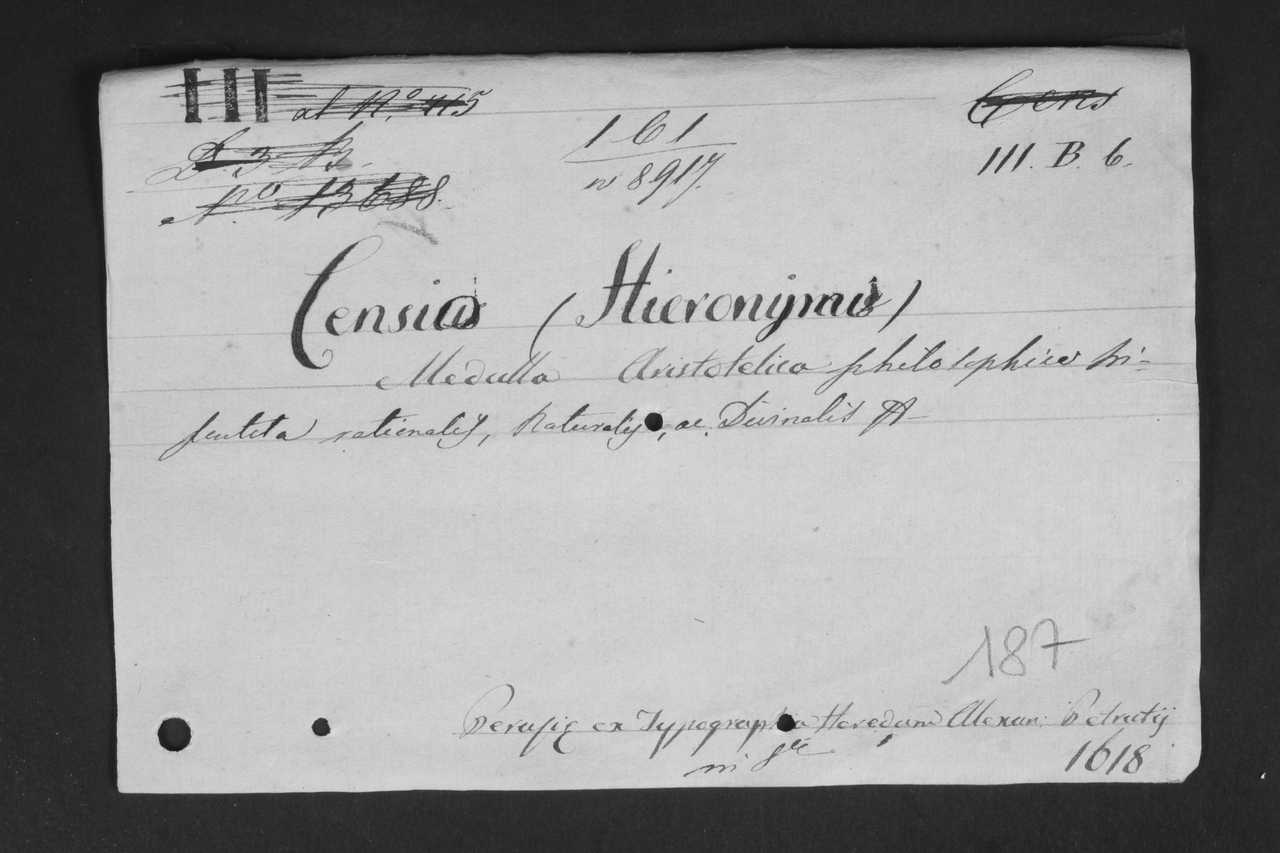 III al N.º 415
Cens
D. 3 N2.
161
III. B. 6.
n 8917.
Nº. 13688.
Censius (Hieronymus)
Medulla Aristotelica philosophiæ tri-
rationalis, Naturalis, ac Divinalis &
187
Perusię ex Typographia Heredum Alexan: Petrutij
in 8ve
1618